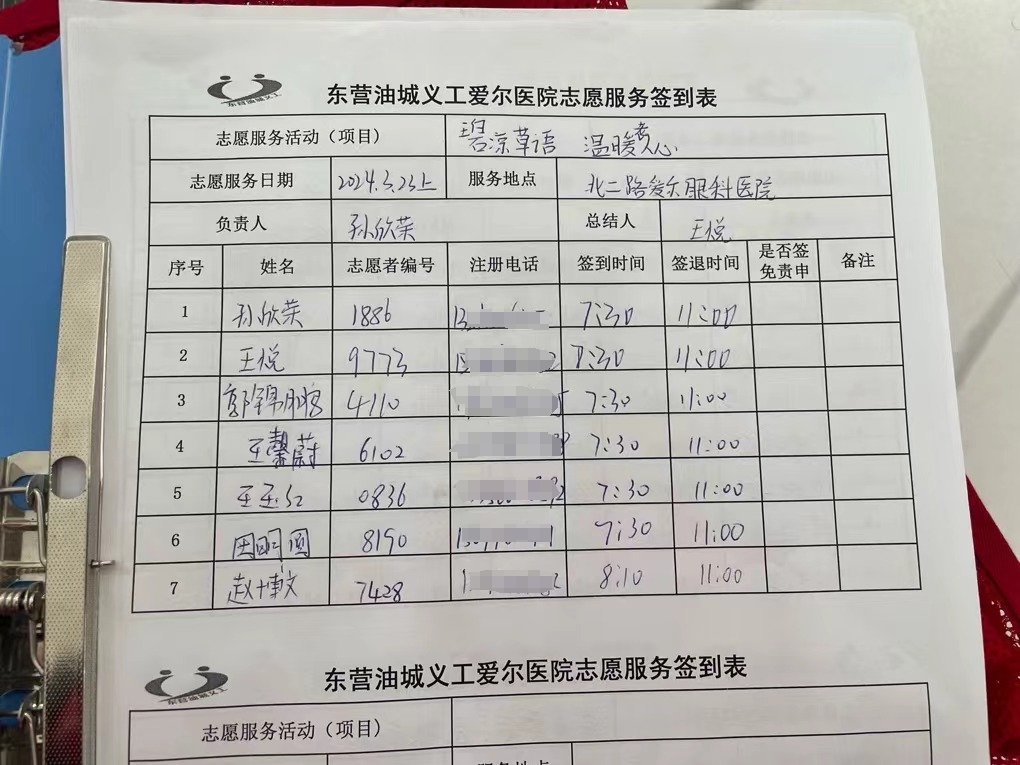 东营油城义工
东营油城义工爱尔医院志愿服务签到表
志愿服务活动（项目） 碧凉草语 温暖爱心
志愿服务日期 2024.3.23上 服务地点 北二路爱尔眼科医院
负责人 孙欣荣 总结人 王悦
序号 姓名 志愿者编号 注册电话 签到时间 签退时间 是否签免责申 备注
1 孙欣荣 1886 7:30 11:00
2 王悦 9773 7:30 11:00
3 4110 7:30 11:00
4 王馨蔚 6102 7:30 11:00
5 王玉红 0836 7:30 11:00
6 8190 7:30 11:00
7 赵博文 7428 8:10 11:00
东营油城义工
东营油城义工爱尔医院志愿服务签到表
志愿服务活动（项目）
服务地点